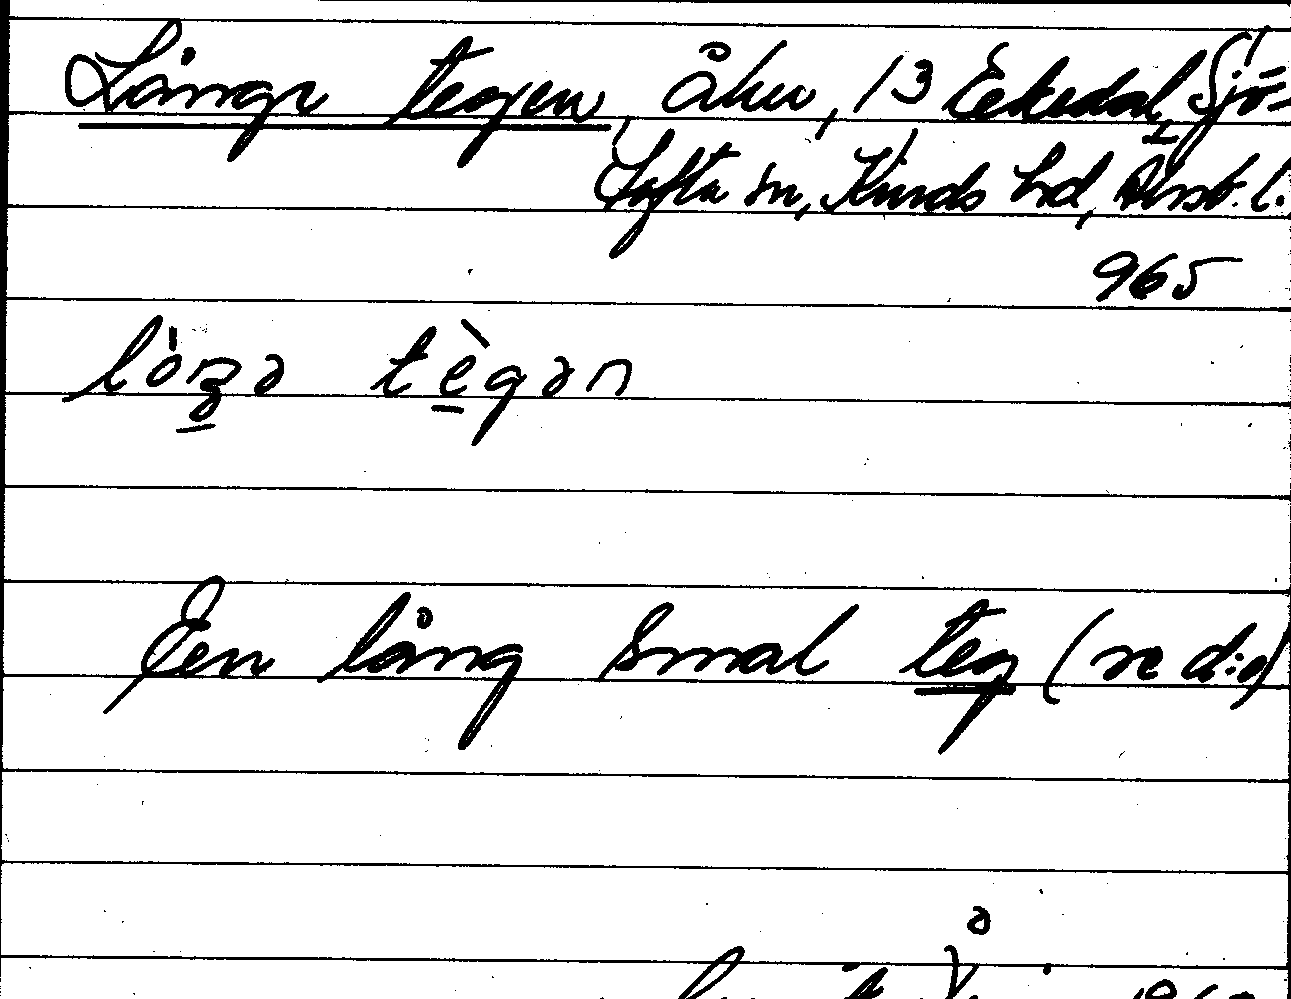 Långe tegen, åker, 13 Eekedal, Sjö-
tofta sn, Kinds hd, Älvsb. l.
965
tègən
En lång smal teg (se d:o)